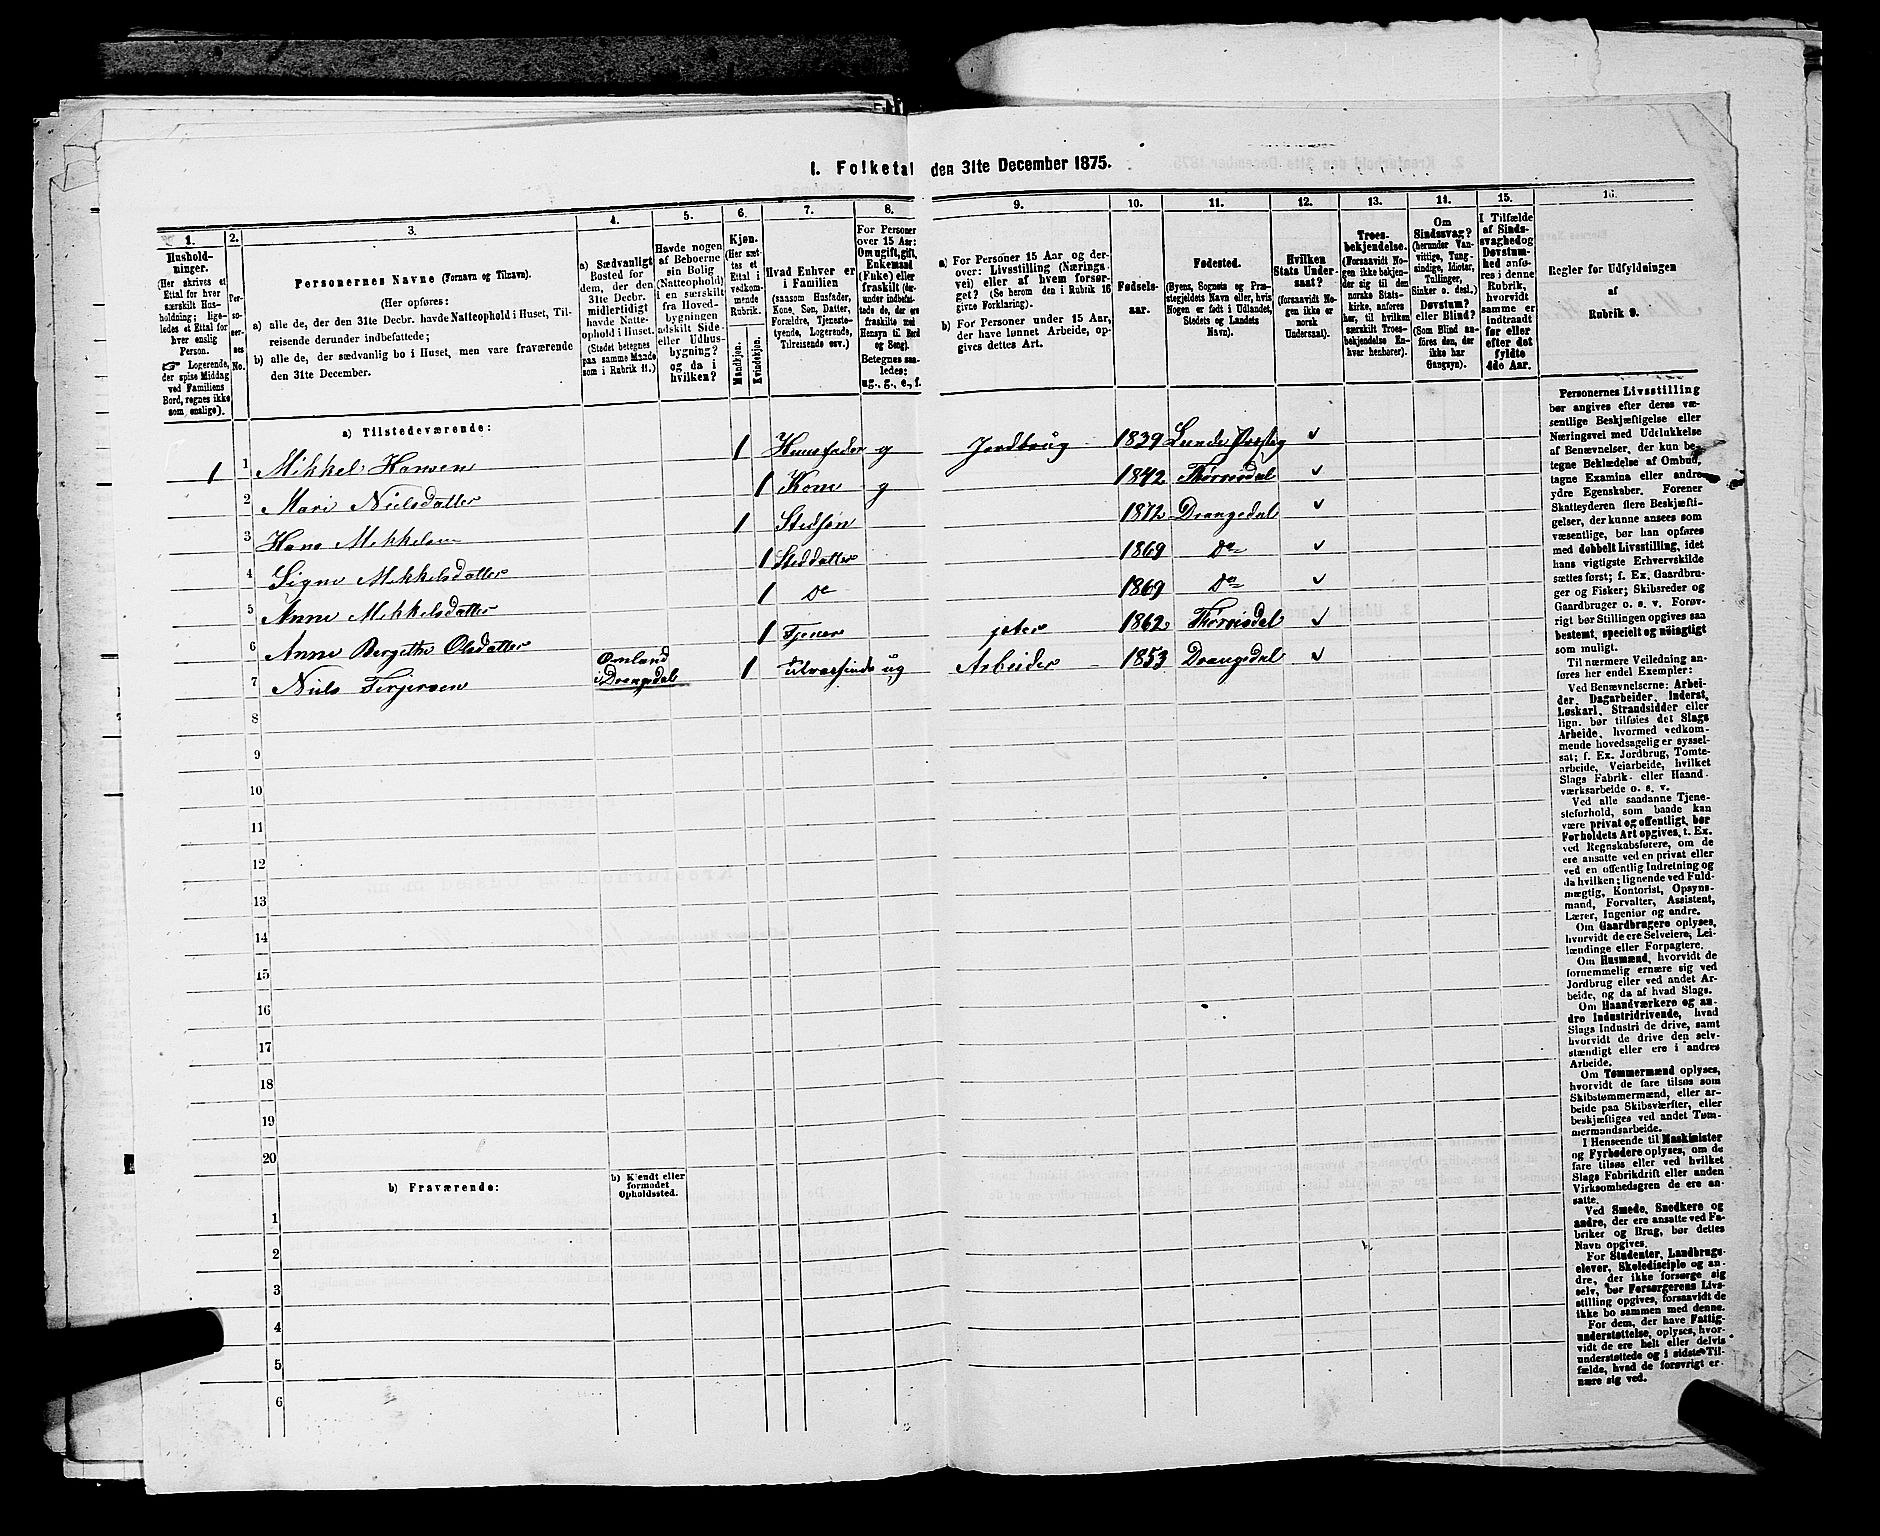 I. Folketal den 31te December 1875.
1. 2. 3. 4. 5. 6. 7. 8. 9. 10. 11. 12. 13. 14. 15. 16.
Husholdninger.
(Her skrives et
Ettal for hver
særskilt Husholdning;
ligeledes et Ettal for
hver enslig
Person.
☞ Logerende,
der spise Middag
ved Familiens
Bord, regnes ikke
som enslige).
Personernes No.
Personernes Navne (Fornavn og Tilnavn).
(Her opføres:
a) alle de, der den 31te Decbr. havde Natteophold i Huset, Tilreisende
derunder indbefattede;
b) alle de, der sædvanlig bo i Huset, men vare fraværende
den 31te December.
a) Sædvanligt
Bosted for
dem, der den
31te Decbr.
midlertidigt
havde Natteophold
i Huset.
(Stedet betegnes
paa samme Maade
som i Rubrik 11.)
Havde nogen
af Beboerne
sin Bolig
(Natteophold)
i en særskilt
fra Hovedbygningen
adskilt Side-
eller Udhusbygning?
og da i
hvilken?
Kjøn.
(Her sættes
et
Ettal i
vedkommende
Rubrik.
Mandkjøn.
Kvindekjøn.
Hvad Enhver er
i Familien
(saasom Husfader,
Kone, Søn, Datter,
Forældre, Tjenestetyende,
Logerende,
Tilreisende osv.)
For Personer
over 15 Aar:
Om ugift, gift,
Enkemand
(Enke) eller
fraskilt (derunder
indbefattede
de, der ere
fraskilte med
Hensyn til Bord
og Seng).
Betegnes saaledes:
ug., g., e., f.
a) For Personer 15 Aar og derover:
Livsstilling (Næringsvei)
eller af hvem forsørget?
(Se herom den i Rubrik 16
givne Forklaring).
b) For Personer under 15 Aar,
der have lønnet Arbeide, opgives
dettes Art.
Fødselsaar.
Fødested.
(Byens, Sognets og Præstegjeldets
Navn eller, hvis
Nogen er født i Udlandet,
Stedets og Landets
Navn).
Hvilken
Stats Undersaat?
(forsaavidt Nogen
ikke er
norsk
Undersaat).
Troesbekjendelse.
(Forsaavidt Nogen
ikke bekjender
sig til den
norske Statskirke,
anføres
her, til hvilken
særskilt Troesbekjendelse
Enhver
henhører).
Om
Sindssvag?
(herunder Vanvittige,
Tungsindige,
Idioter,
Tullinger,
Sinker o. desl.)
Døvstum?
eller Blind?
(Som Blind anføres
den, der
ikke har
Gangsyn).
I Tilfælde
af Sindssvaghed
og
Døvstumhed
anføres
i denne
Rubrik,
hvorvidt
samme er
indtraadt
før eller
efter det
fyldte
4de Aar.
Regler for Udfyldningen
af
Rubrik 9.
a) Tilstedeværende:
1 1 Mikkel Hansen 1 Huusfader g Jordbrug 1839 Lunde Præsteg ✓
2 Mari Nielsdatter 1 Kone g 1842 Tørrisdal ✓
3 Hans Mikkelsen 1 Stedsøn 1872 Drangedal ✓
4 Signe Mikkelsdatter 1 Steddatter 1869 Do ✓
5 Anne Mikkelsdatter 1 Do 1869 Do ✓
6 Anne Bergithe Olsdatter 1 Tjener jeter 1862 Tørrisdal ✓
7 Niels Terjersen Omland i Drangedal 1 ug Arbeider 1853 Drangedal ✓
8
9
10
11
12
13
14
15
16
17
18
19
20
b) Fraværende:
b) Kjendt eller
formodet
Opholdssted.
1
2
3
4
5
6
Personernes Livsstilling
bør angives efter deres væsentlige
Beskjæftigelse eller
Næringsvei med Udelukkelse
af Benævnelser, der kun betegne
Beklædelse af Ombud,
tagne Examina eller andre
ydre Egenskaber. Forener
Skatteyderen flere Beskjæftigelser,
der kunne ansees som
væsentlige, bør han opføres
med dobbelt Livsstilling, idet
hans vigtigste Erhvervskilde
sættes først; f. Ex. Gaardbruger
og Fisker; Skibsreder og
Gaardbruger o. s. v. Forøvrigt
bør Stillingen opgives saa
bestemt, specielt og nøiagtigt
som muligt.
Til nærmere Veiledning anføres
her endel Exempler:
Ved Benævnelserne: Arbeider,
Dagarbeider, Inderst,
Løskarl, Strandsidder eller
lign. bør tilføies det Slags
Arbeide, hvormed vedkommende
hovedsagelig er sysselsat;
f. Ex. Jordbrug, Tomtearbeide,
Veiarbeide, hvilket
Slags Fabrik- eller Haandværksarbeide
o. s. v.
Ved alle saadanne Tjenesteforhold,
som baade kan
være privat og offentligt, bør
Forholdets Art opgives, t. Ex.
ved Regnskabsførere, om de
ere ansatte ved en privat eller
ved en offentlig Indretning og
da hvilken; lignende ved Fuldmægtig,
Kontorist, Opsynsmand,
Forvalter, Assistent,
Lærer, Ingeniør og andre.
Om Gaardbrugere oplyses,
hvorvidt de ere Selveiere, Leilændinge
eller Forpagtere.
Om Husmænd, hvorvidt de
fornemmelig ernære sig ved
Jordbrug eller ved andet Arbeide,
og da af hvad Slags.
Om Haandværkere og andre
Industridrivende, hvad
Slags Industri de drive, samt
hvorvidt de drive den selvstændigt
eller ere i andres
Arbeide.
Om Tømmermænd oplyses,
hvorvidt de fare tilsøs som
Skibstømmermænd, eller arbeide
paa Skibsværfter, eller
beskjæftiges ved andet Tømmermandsarbeide.
I Henseende til Maskinister
og Fyrbødere oplyses, om de
fare tilsøs eller ved hvilket
Slags Fabrikdrift eller anden
Virksomhedsgren de ere ansatte.
Ved Smede, Snedkere og
andre, der ere ansatte ved Fabriker
og Brug, bør dettes
Navn opgives.
For Studenter, Landbrugselever,
Skoledisciple og andre,
der ikke forsørge sig
selv, bør Forsørgerens Livsstilling
opgives, forsaavidt de
ikke bo sammen med denne.
For dem, der have Fattigunderstøttelse,
oplyses, hvorvidt
de ere helt eller delvis
understøttede og i sidste Tilfælde,
hvad de forøvrigt ernære
sig ved.